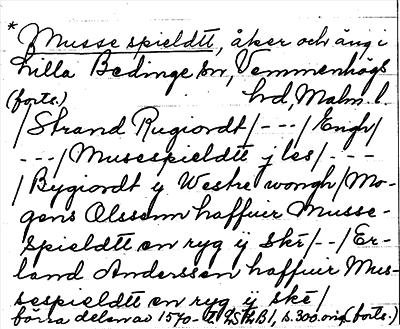 * Musse spieldtt, åker och äng i
Lilla Bedinge sn, Vemmenhögs
(forts.) hd, Malm. l.
/Strand Rugiordt/---/Engh/
---/Musespieldtt j les/---
/Bygiordt ÿ Westre wongh/Mo-
gens Olssenn haffuer Musse-
spieldtt en ryg ÿ ske/--/Er-
land Anderssen haffuer Mus-
sespieldtt en ryg ÿ ske/
början av 1570- s.300. orig. (forts.)